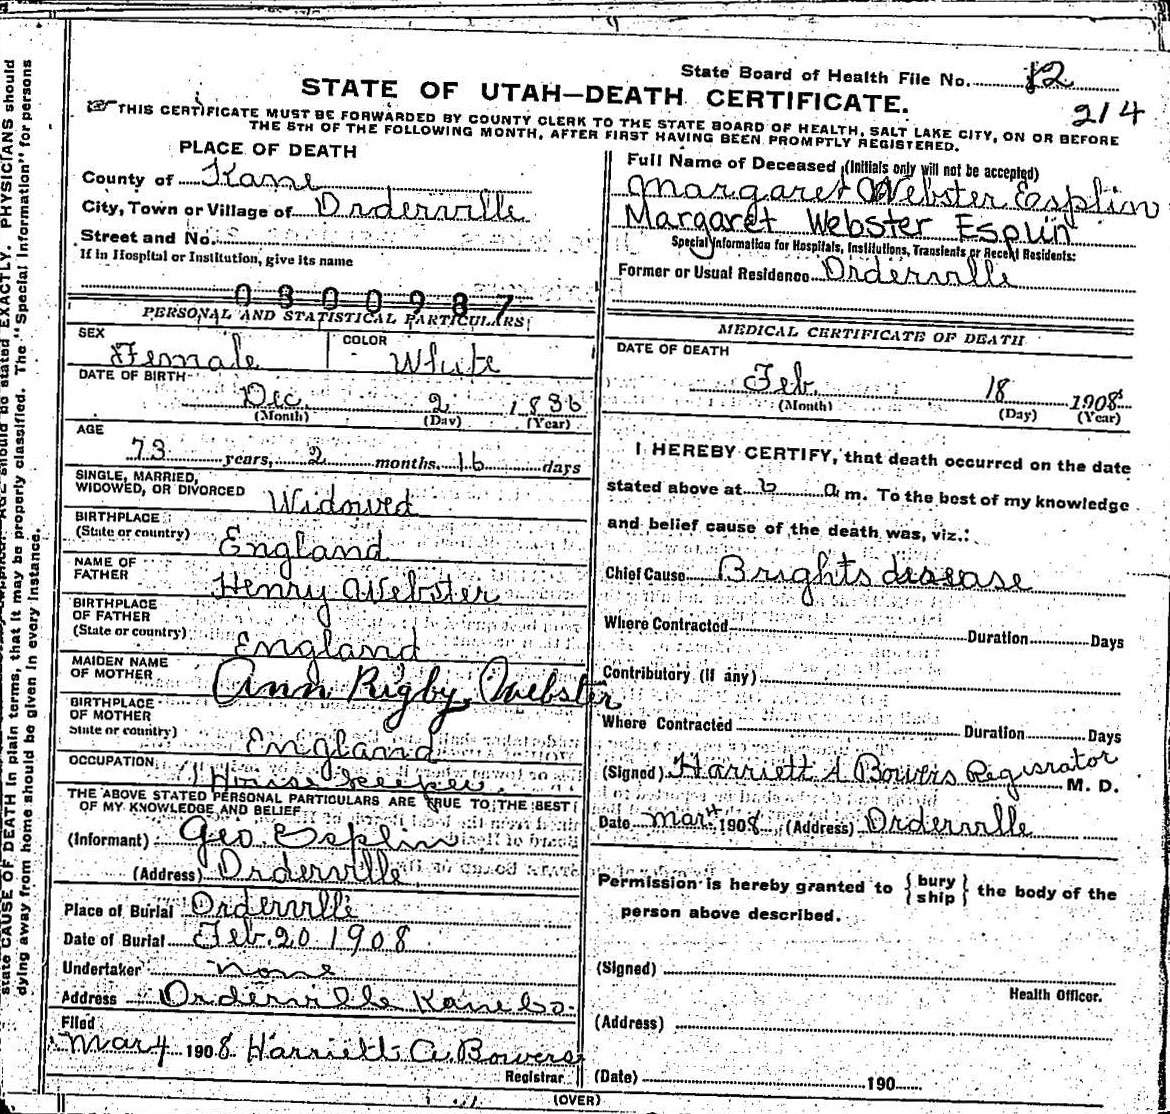 State Board of Health File No. 12
STATE OF UTAH—DEATH CERTIFICATE.
214
THIS CERTIFICATE MUST BE FORWARDED BY COUNTY CLERK TO THE STATE BOARD OF HEALTH, SALT LAKE CITY, ON OR BEFORE
THE 5TH OF THE FOLLOWING MONTH, AFTER FIRST HAVING BEEN PROMPTLY REGISTERED.
PLACE OF DEATH
County of Kane
City, Town or Village of Orderville
Street and No.
If in Hospital or Institution, give its name
0300987
Full Name of Deceased (Initials only will not be accepted)
Margaret Webster Esplin
Margaret Webster Esplin
Special Information for Hospitals, Institutions, Transients or Recent Residents:
Former or Usual Residence Orderville
PERSONAL AND STATISTICAL PARTICULARS
SEX Female COLOR White
DATE OF BIRTH
Dec 2 1836
(Month) (Day) (Year)
AGE
73 years, 2 months. 16 days
SINGLE, MARRIED,
WIDOWED, OR DIVORCED Widowed
BIRTHPLACE
(State or country) England
NAME OF
FATHER Henry Webster
BIRTHPLACE
OF FATHER
(State or country) England
MAIDEN NAME
OF MOTHER Ann Rigby Webster
BIRTHPLACE
OF MOTHER
State or country) England
OCCUPATION House keeper.
THE ABOVE STATED PERSONAL PARTICULARS ARE TRUE TO THE BEST
OF MY KNOWLEDGE AND BELIEF
(Informant) Geo. Esplin
(Address) Orderville
Place of Burial Orderville
Date of Burial Feb. 20 1908
Undertaker none
Address Orderville Kane Co.
Filed
Mar 4 1908 Harriett A. Bowers
Registrar
MEDICAL CERTIFICATE OF DEATH
DATE OF DEATH
Feb. 18 1908
(Month) (Day) (Year)
I HEREBY CERTIFY, that death occurred on the date
stated above at 6 a m. To the best of my knowledge
and belief cause of the death was, viz.:
Chief Cause Brights disease
Where Contracted Duration Days
Contributory (if any)
Where Contracted Duration Days
(Signed) Harriett A Bowers Regisrator M. D.
Date mar 4 1908, (Address) Orderville
Permission is hereby granted to { bury
ship } the body of the
person above described.
(Signed)
Health Officer.
(Address)
(Date) 190
(OVER)
state CAUSE OF DEATH in plain terms, that it may be properly classified. The "Special Information" for persons
dying away from home should be given in every instance.
should be stated EXACTLY. PHYSICIANS should